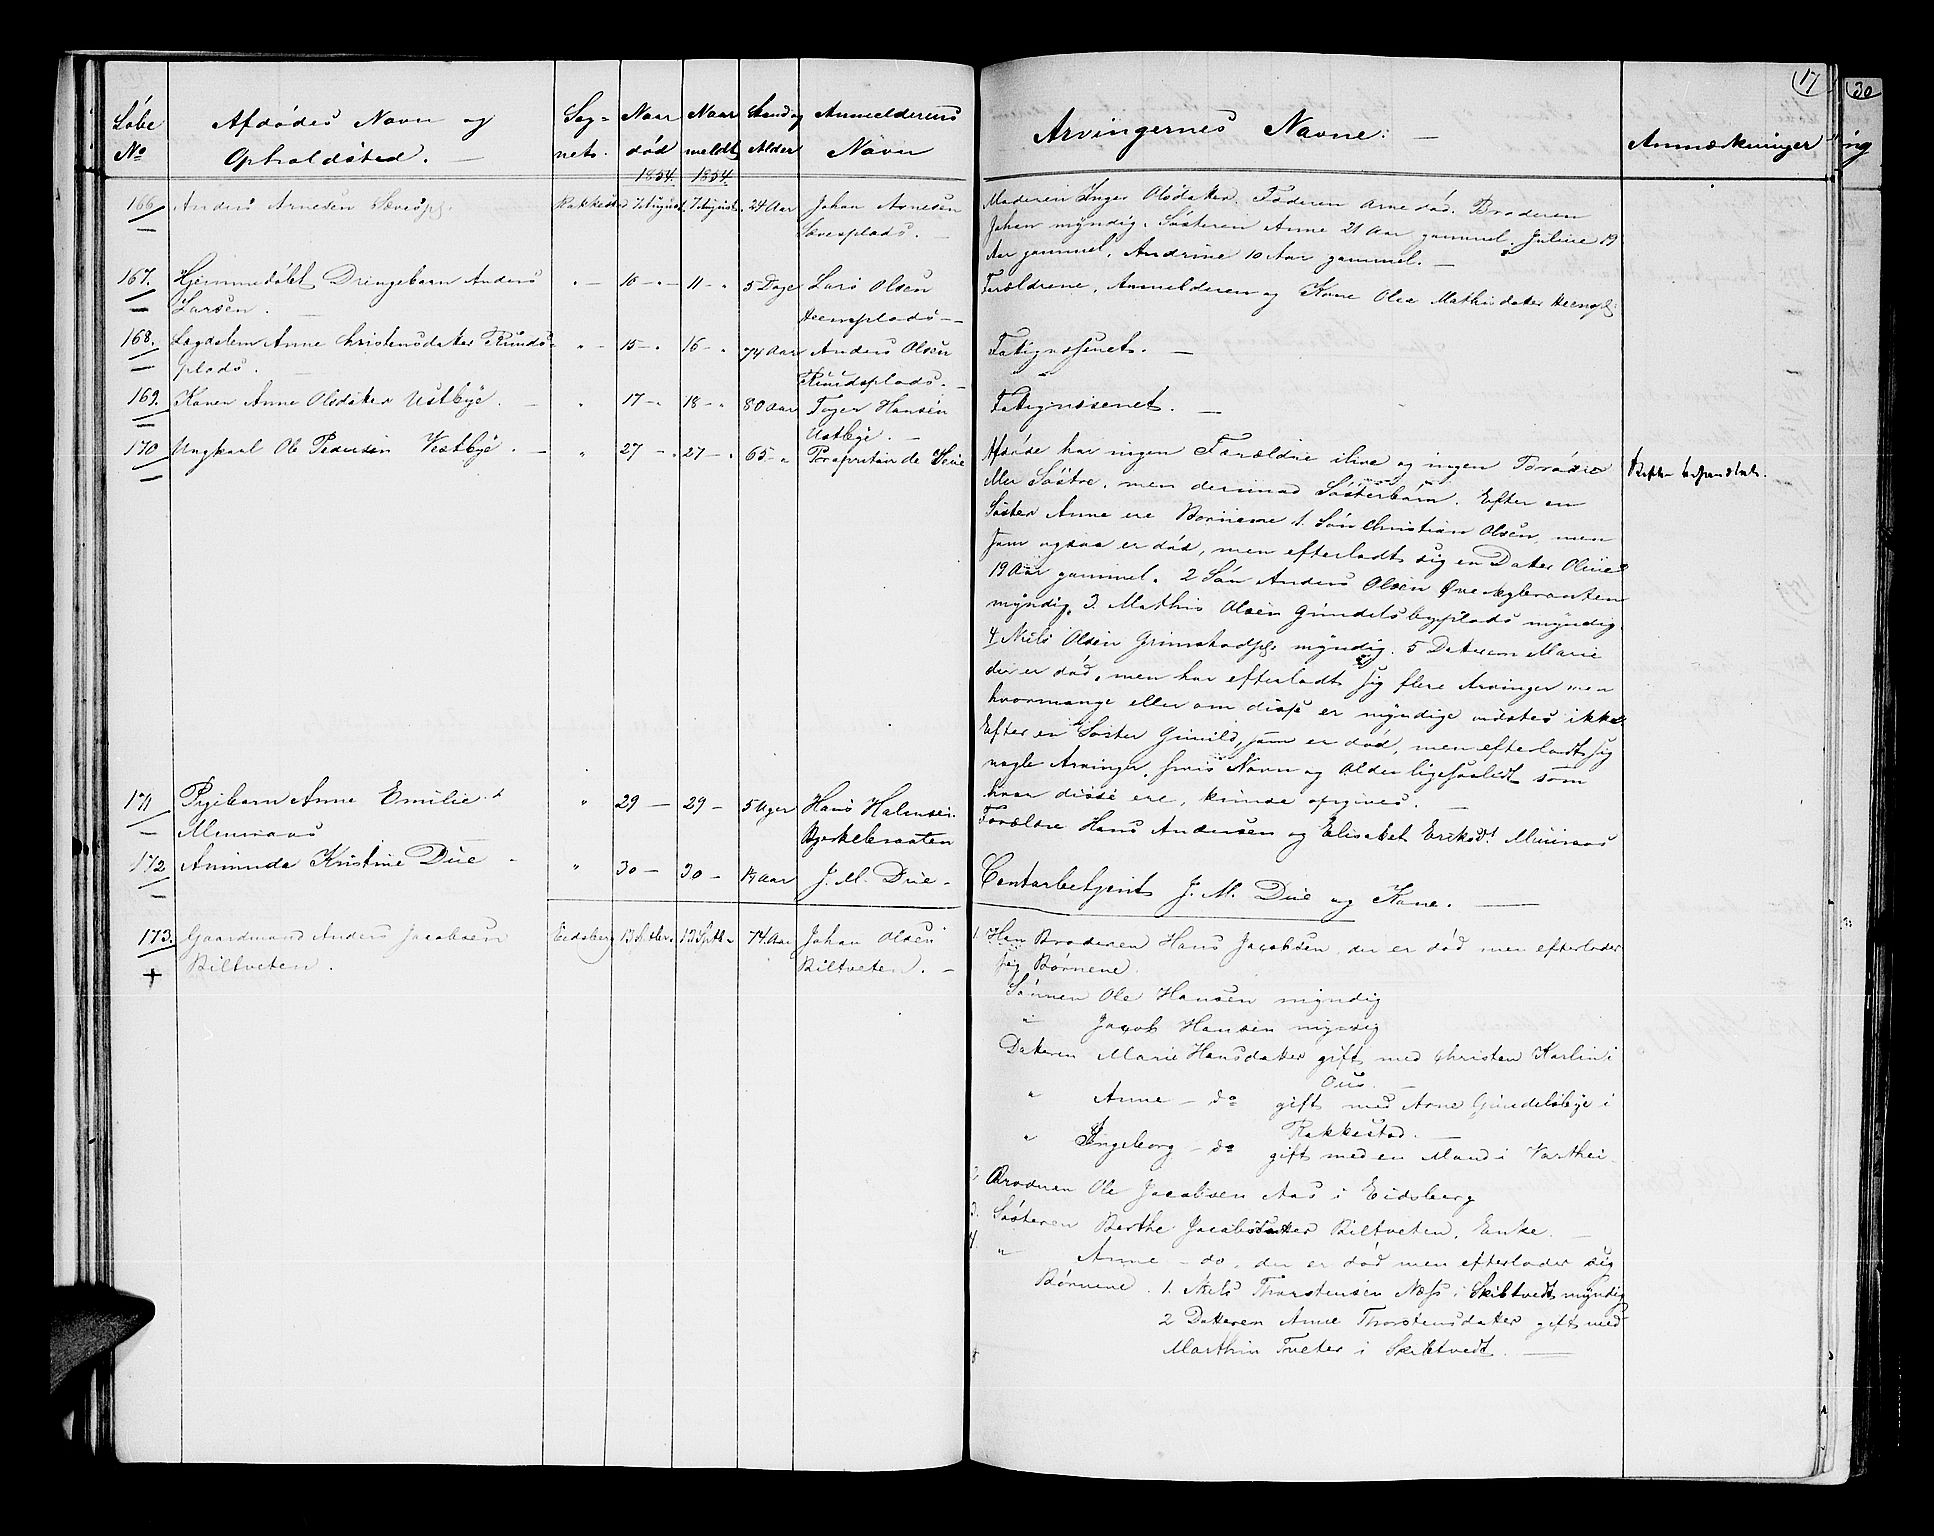 17
30
Løbe No
Afdødes Navn og Opholdsted.
Sognets
Naar død 1854.
Naar meldt 1854.
Stand og Alder
Anmelderens Navn
Arvingernes Navne:
Anmærkninger
166
Anders Arnesen
Rakkestad
7 August
7 August
24 Aar
Johan Arnesen
Moderen Inger Olsdater. Faderen Arne død. Broderen
Johan myndig. Søsteren Anne 21 Aar gammel. Juline 19
Aar gammel, Andrine 10 Aar gammel.
167.
Hjemmedøbt Drengebarn Anders
Larsen.
"
10
11
5 Dage
Lars Olsen
Forældrene, Anmelderen og Kone Olea
168.
Lægdslem Anne Christensdater
plads.
"
15
16
74 Aar
Anders Olsen
Fatigvæsenet.
169.
Konen Anne Olsdater Ustbye.
"
17
18
80 Aar
Hansen
Ustbye.
Fatigvæsenet.
170
Ungkarl Ole Pedersen Vestbye.
"
27
27
65
Proprietair de Seue
Afdøde har ingen Forældre ilive og ingen Brødre
eller Søstre, men derimod Søsterbørn. Efter en
Søster Anne ere Børnene 1. Søn Christian Olsen men
som ogsaa er død, men efterladt sig en Dater Oline
19 Aar gammel. 2 Søn Anders Olsen
myndig. 3. Mathis Olsen Gundelsbyplads myndig.
4 Niels Olsen Grimstadpl. myndig. 5 Dateren Marie
der er død, men har efterladt sig flere Arvinger men
hvormange eller om disse er myndige vidstes ikke
Efter en Søster Gunild, som er død, men efterladt sig
nogle Arvinger, hvis Navn og Alder ligesaalidt som
hvor disse ere, kunde opgives.
171
Pigebarn Anne Emilie
"
29
29
5 Uger
Hans Halvorsen
Bjerkebraaten
Forældre Hans Andersen og Elisabet Eriksdt.
172
Aminda Kristine Due
"
30
30
J. M. Due
Contorbetjent J. M. Due og Kone.
173.
+
Gaardmand Anders Jacobsen
Biltveten.
Eidsberg
13 Sptbr.
13 Sptb.
74 Aar
Johan Olsen
Biltveten.
1. Broderen Hans Jacobsen, der er død men efterlader
sig Børnene.
Sønnen Ole Hansen myndig
" Jacob Hansen myndig
Dateren Marie Hansdater gift med Christen Karlin i
Ous.
" Anne do gift med Arne Gundelsbye i
Rakkestad.
" Ingeborg do gift med en Mand i Varthei
2. Broderen Ole Jacobsen Aas i Eidsberg
3. Søsteren Berthe Jacobsdatter Biltveten, Enke.
4. " Anne do, der er død men efterlader sig
Børnene. 1. Niels Thorstensen Næss i Skibtvedt myndig
2 Datteren Anne Thorstensdater gift med
Marthin Tveter i Skibtvedt.